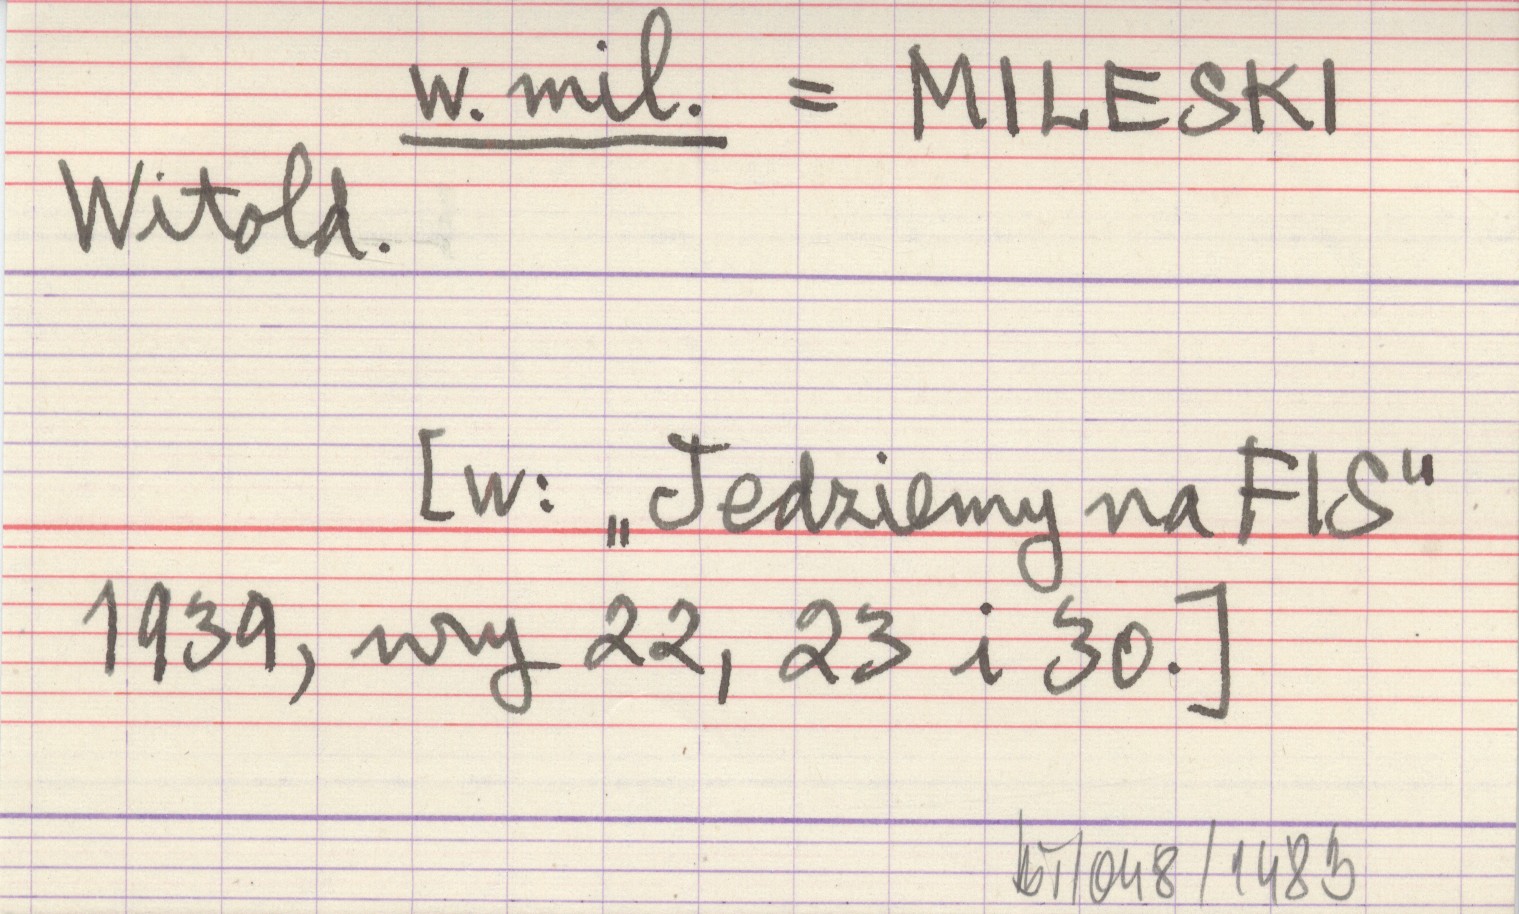 w. mil. = MILESKI
Witold.
[w: „Jedziemy na FIS"
1939, nry 22, 23 i 30.]
/048/1483